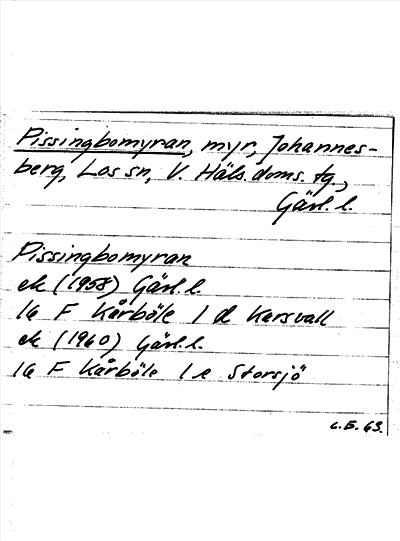 Pissingbomyran, myr, Johannes-
berg, Los sn, V. Häls. doms. tg.,
Gävl. l.
Pissingbomyran
ek (1958) Gävl. l.
16 F Kårböle 1 d Karsvall
ek (1960) Gävl. l.
16 F Kårböle 1 e Storsjö
L.E. 63.